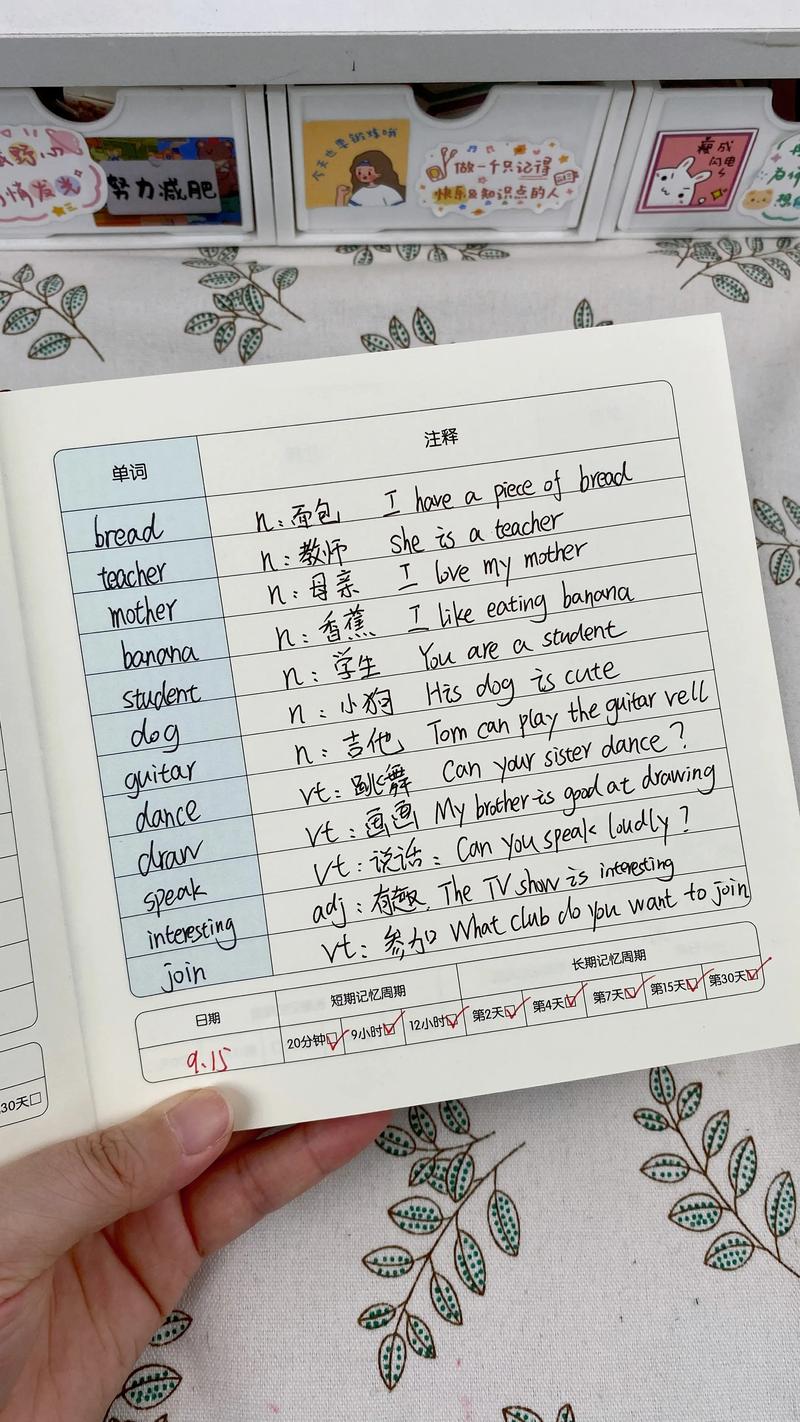 努力减肥
今天也要锻炼哦
做一个只记得
快乐及知识点的人
瘦成
闪电
单词 注释
bread n: 面包 I have a piece of bread
teacher n: 教师 She is a teacher
mother n: 母亲 I love my mother
banana n: 香蕉 I like eating banana
student n: 学生 You are a student
dog n: 小狗 His dog is cute
guitar n: 吉他 Tom can play the guitar vell
dance vt: 跳舞 Can your sister dance?
draw vt: 画画 My brother is good at drawing
speak vt: 说话: Can you speak loudly?
interesting adj: 有趣. The TV show is interesting
join vt: 参加 What club do you want to join
日期 短期记忆周期 长期记忆周期
9.15 20分钟 9小时 12小时 第2天 第4天 第7天 第15天 第30天
30天